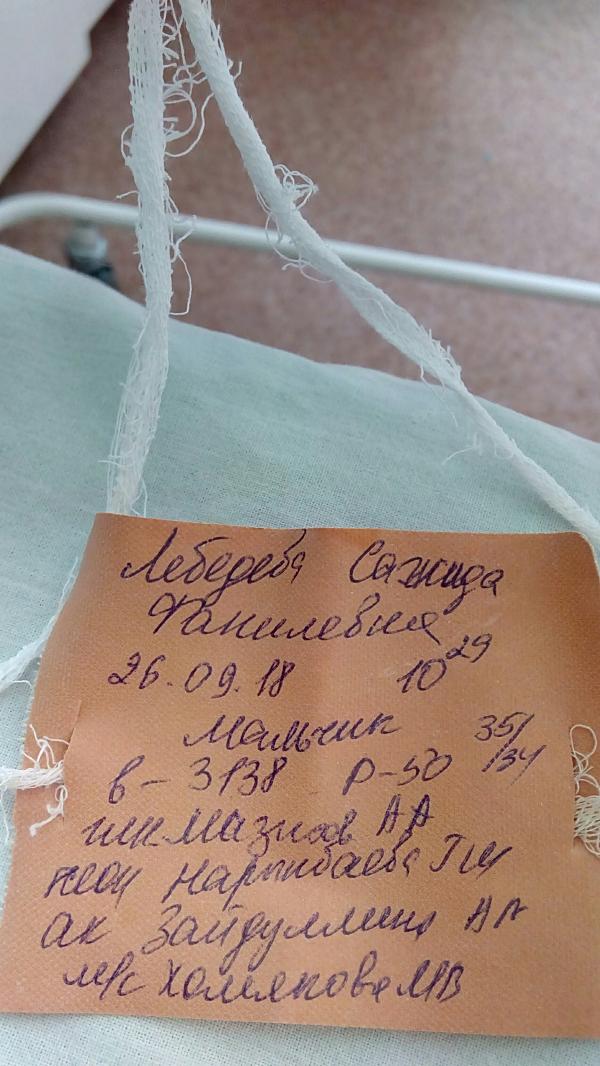 Лебедева Сажида
Фанилевна
26.09.18 10²⁹
мальчик 35/34
в-3138 р-50
А А
неон Нарынбаева
ак Зайдуллина АА
м/с Холмякова МВ